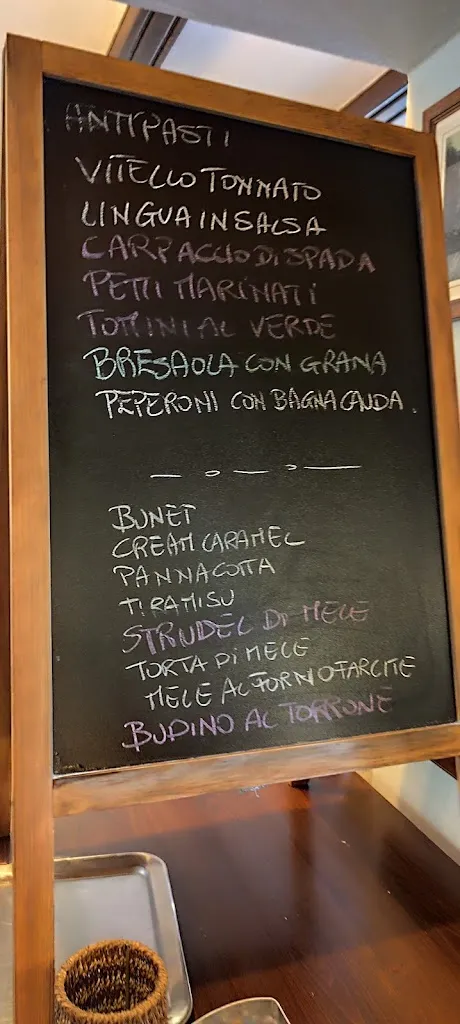 ANTIPASTI
VITELLO TONNATO
LINGUA IN SALSA
CARPACCIO DI SPADA
PETTI MARINATI
TOMINI AL VERDE
BRESAOLA CON GRANA
PEPERONI CON BAGNA CAUDA.
BUNET
CREAM CARAMEL
PANNA COTTA
TIRAMISU
STRUDEL DI MELE
TORTA DI MELE
MELE AL FORNO FARCITE
BUDINO AL TORRONE